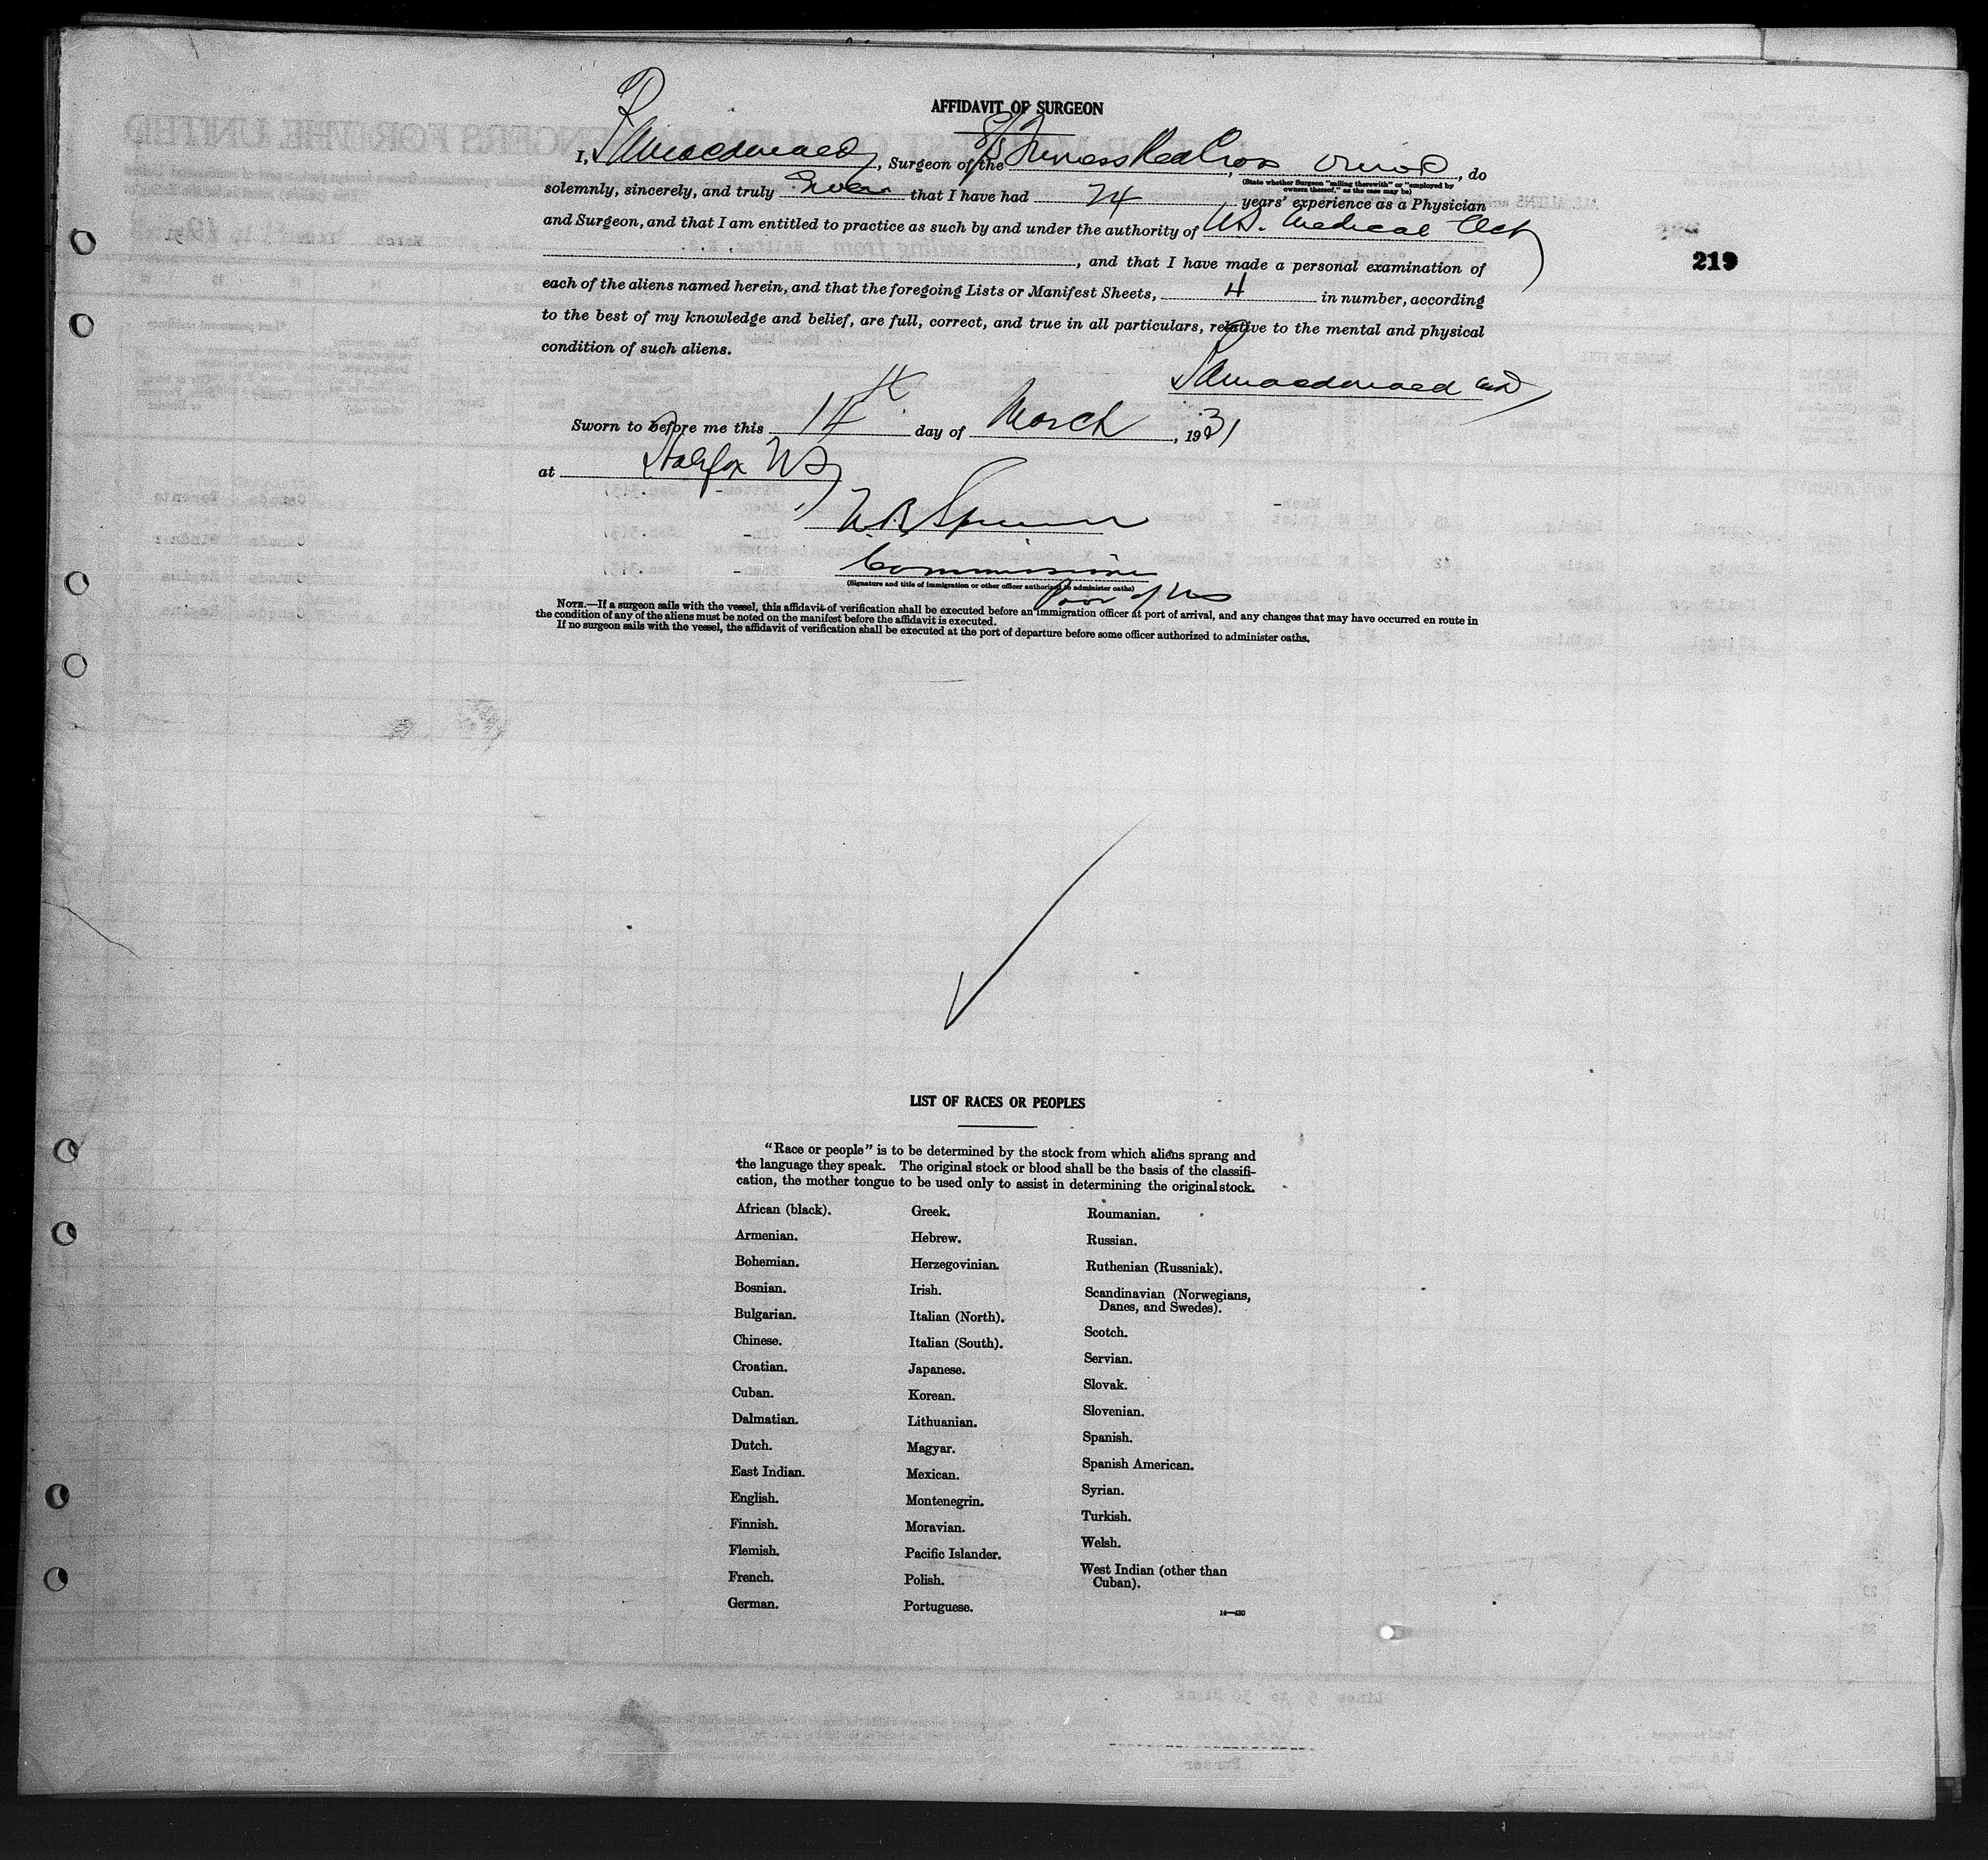 AFFIDAVIT OF SURGEON
I, Macdonald, Surgeon of the S/S Furness Red Cross, do
(State whether Surgeon "sailing therewith" or "employed by
owners thereof," as the case may be)
solemnly, sincerely, and truly Swear that I have had 24 years' experience as a Physician
and Surgeon, and that I am entitled to practice as such by and under the authority of NS. Medical Act
, and that I have made a personal examination of
219
each of the aliens named herein, and that the foregoing Lists or Manifest Sheets, 4 in number, according
to the best of my knowledge and belief, are full, correct, and true in all particulars, relative to the mental and physical
condition of such aliens.
Macdonald MD
Sworn to before me this 14th day of March, 1931
at Halifax NS
Commissioner
(Signature and title of immigration or other officer authorized to administer oaths)
Prov of NS
NOTE.—If a surgeon sails with the vessel, this affidavit of verification shall be executed before an immigration officer at port of arrival, and any changes that may have occurred en route in
the condition of any of the aliens must be noted on the manifest before the affidavit is executed.
If no surgeon sails with the vessel, the affidavit of verification shall be executed at the port of departure before some officer authorized to administer oaths.
LIST OF RACES OR PEOPLES
"Race or people" is to be determined by the stock from which aliens sprang and
the language they speak. The original stock or blood shall be the basis of the classifi-
cation, the mother tongue to be used only to assist in determining the original stock.
African (black).
Armenian.
Bohemian.
Bosnian.
Bulgarian.
Chinese.
Croatian.
Cuban.
Dalmatian.
Dutch.
East Indian.
English.
Finnish.
Flemish.
French.
German.
Greek.
Hebrew.
Herzegovinian.
Irish.
Italian (North).
Italian (South).
Japanese.
Korean.
Lithuanian.
Magyar.
Mexican.
Montenegrin.
Moravian.
Pacific Islander.
Polish.
Portuguese.
Roumanian.
Russian.
Ruthenian (Russniak).
Scandinavian (Norwegians,
Danes, and Swedes).
Scotch.
Servian.
Slovak.
Slovenian.
Spanish.
Spanish American.
Syrian.
Turkish.
Welsh.
West Indian (other than
Cuban).
14—430